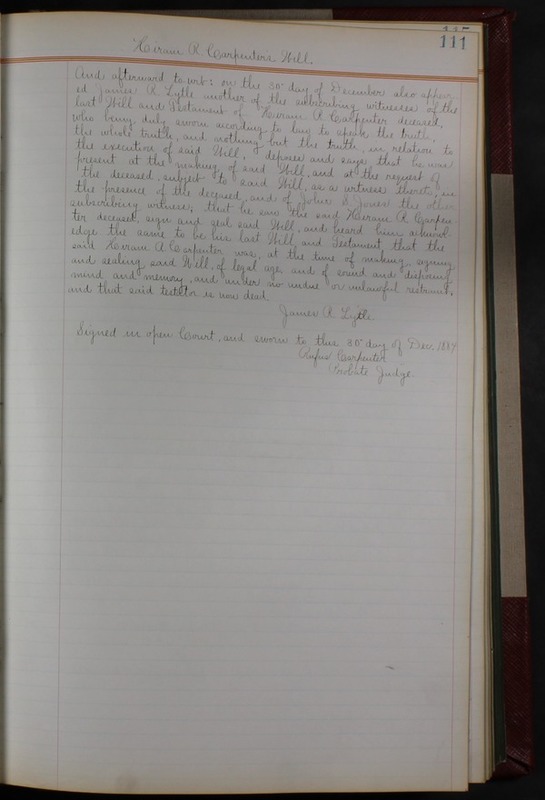 111
Hiram R. Carpenters Will.
And afterward to-wit: on the 30" day of December also appear
ed James R. Lytle another of the subscribing witnesses of the
last Will and Testament of Hiram R Carpenter deceased,
who being duly sworn according to law to speak the truth,
the whole truth, and nothing but the truth, in relation to
the execution of said Will, deposes and says that he was
present at the making of said Will, and at the request of
the deceased, subject to said Will, as a witness thereto, in
the presence of the deceased, and of John S. Jones the other
subscribing witness; that he saw the said Hiram R. Carpen
ter deceased, sign and seal said Will, and heard him acknowl
edge the same to be his last Will and Testament, that the
said Hiram R. Carpenter was, at the time of making, signing
and sealing, said Will, of legal age, and of sound and disposing
mind and memory, and under no undue or unlawful restraint,
and that said testator is now dead.
James R. Lytle
Signed in open Court, and sworn to this 30" day of Dec. 1887
Rufus Carpenter
Probate Judge.